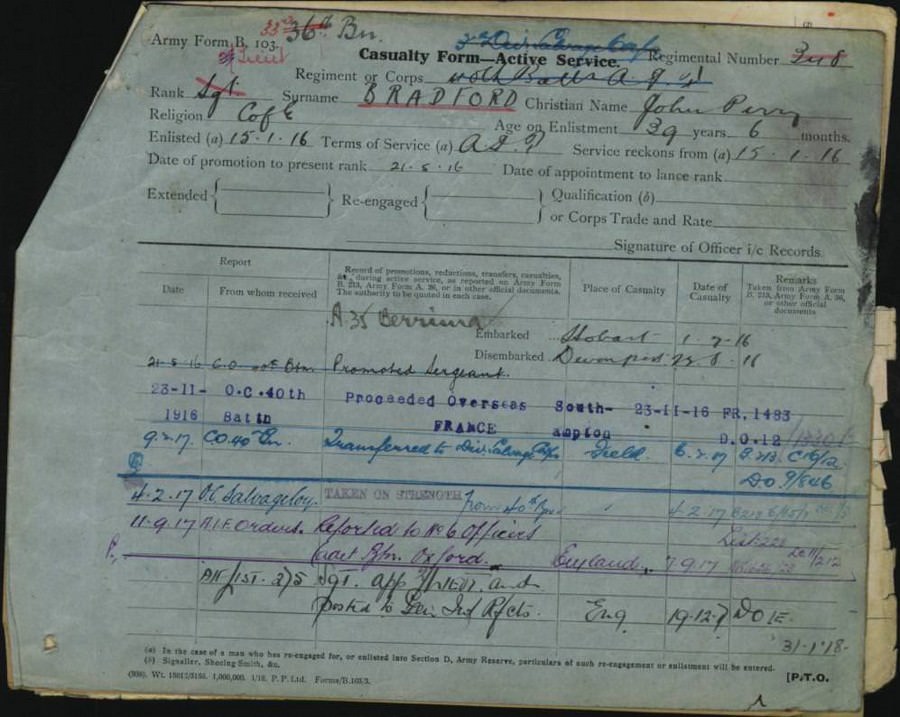 33rd 36th Bn.
Army Form B. 103.
3rd Div. Salvage Coy
Regimental Number 348
2/Lieut
Casualty Form—Active Service.
Regiment or Corps 40th Battn A.I.F.
Rank Sgt Surname BRADFORD Christian Name John Percy
Religion C of E Age on Enlistment 39 years 6 months.
Enlisted (a) 15.1.16 Terms of Service (a) A.I.F. Service reckons from (a) 15.1.16
Date of promotion to present rank 21.5.16 Date of appointment to lance rank
Extended Re-engaged Qualification (b)
or Corps Trade and Rate
Signature of Officer i/c Records.
Report
Date From whom received
Record of promotions, reductions, transfers, casualties, &c., during active service, as reported on Army Form B. 213, Army Form A. 36, or in other official documents. The authority to be quoted in each case.
Place of Casualty
Date of Casualty
Remarks Taken from Army Form B. 213, Army Form A. 36, or other official documents
A.35 Berrima
Embarked Hobart 1.7.16
Disembarked Devonport 22.8.16
21.5.16 C.O. 40th Btn. Promoted Sergeant.
23-11- O.C.40th Proceeded Overseas South- 23-11-16 FR.1483
1916 Battn FRANCE ampton D.O.12
9.2.17 CO 40 Bn. Transferred to Div. Salvage Coy Field. 6.2.17 B.213
DO 9/846
4.2.17 O.C. Salvage Coy. TAKEN ON STRENGTH from 40th Bn 4.2.17
11.9.17 A.I.F. Orders. Reported to No 6 Officers
Cadet Btn. Oxford. England. 7.9.17
AIF List. 275 Sgt. app 2/Lieut. and
posted to Gen. Inf. Rfcts. Eng 19.12.7 DO 1E
31.1.18
(a) In the case of a man who has re-engaged for, or enlisted into Section D, Army Reserve, particulars of such re-engagement or enlistment will be entered.
(b) Signaller, Shoeing-Smith, &c.
1,000,000. 1/16. P.P. Ltd. Forms/B.103/3.
[P.T.O.